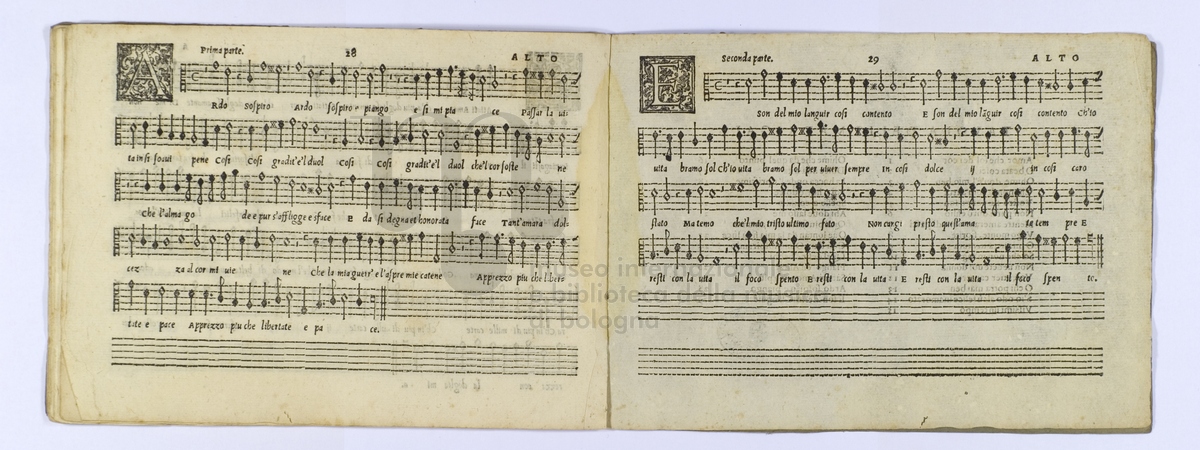 Prima parte. 28 ALTO
A Rdo Sospiro Ardo sospiro e piango e si mi pia ce Passar la ui
ta in si soaui pene Cosi Cosi gradit'e'l duol Cosi Cosi gradit'e'l duol che'l cor soste ne
Che l'alma go de e pur s'affligge e sface E da si degna et honorata face Tant'amara dol-
cez za al cor mi uie ne che la mia guerr'e l'aspre mie catene Apprezzo piu che liber-
tate e pace Apprezzo piu che libertate e pa ce.
Seconda parte. 29 ALTO
E Son del mio languir cosi contento E son del mio lãguir cosi contento Ch'io
uita bramo sol ch'io uita bramo sol per uiuer sempre in cosi dolce ij in cosi caro
stato Ma temo che'l mio tristo ultimo fato Non cangi presto quest'ama ta tem pre E
resti con la uita il foco spento E resti con la uita E resti con la uita il foco spen to.
Museo internazionale
e biblioteca della musica
di bologna